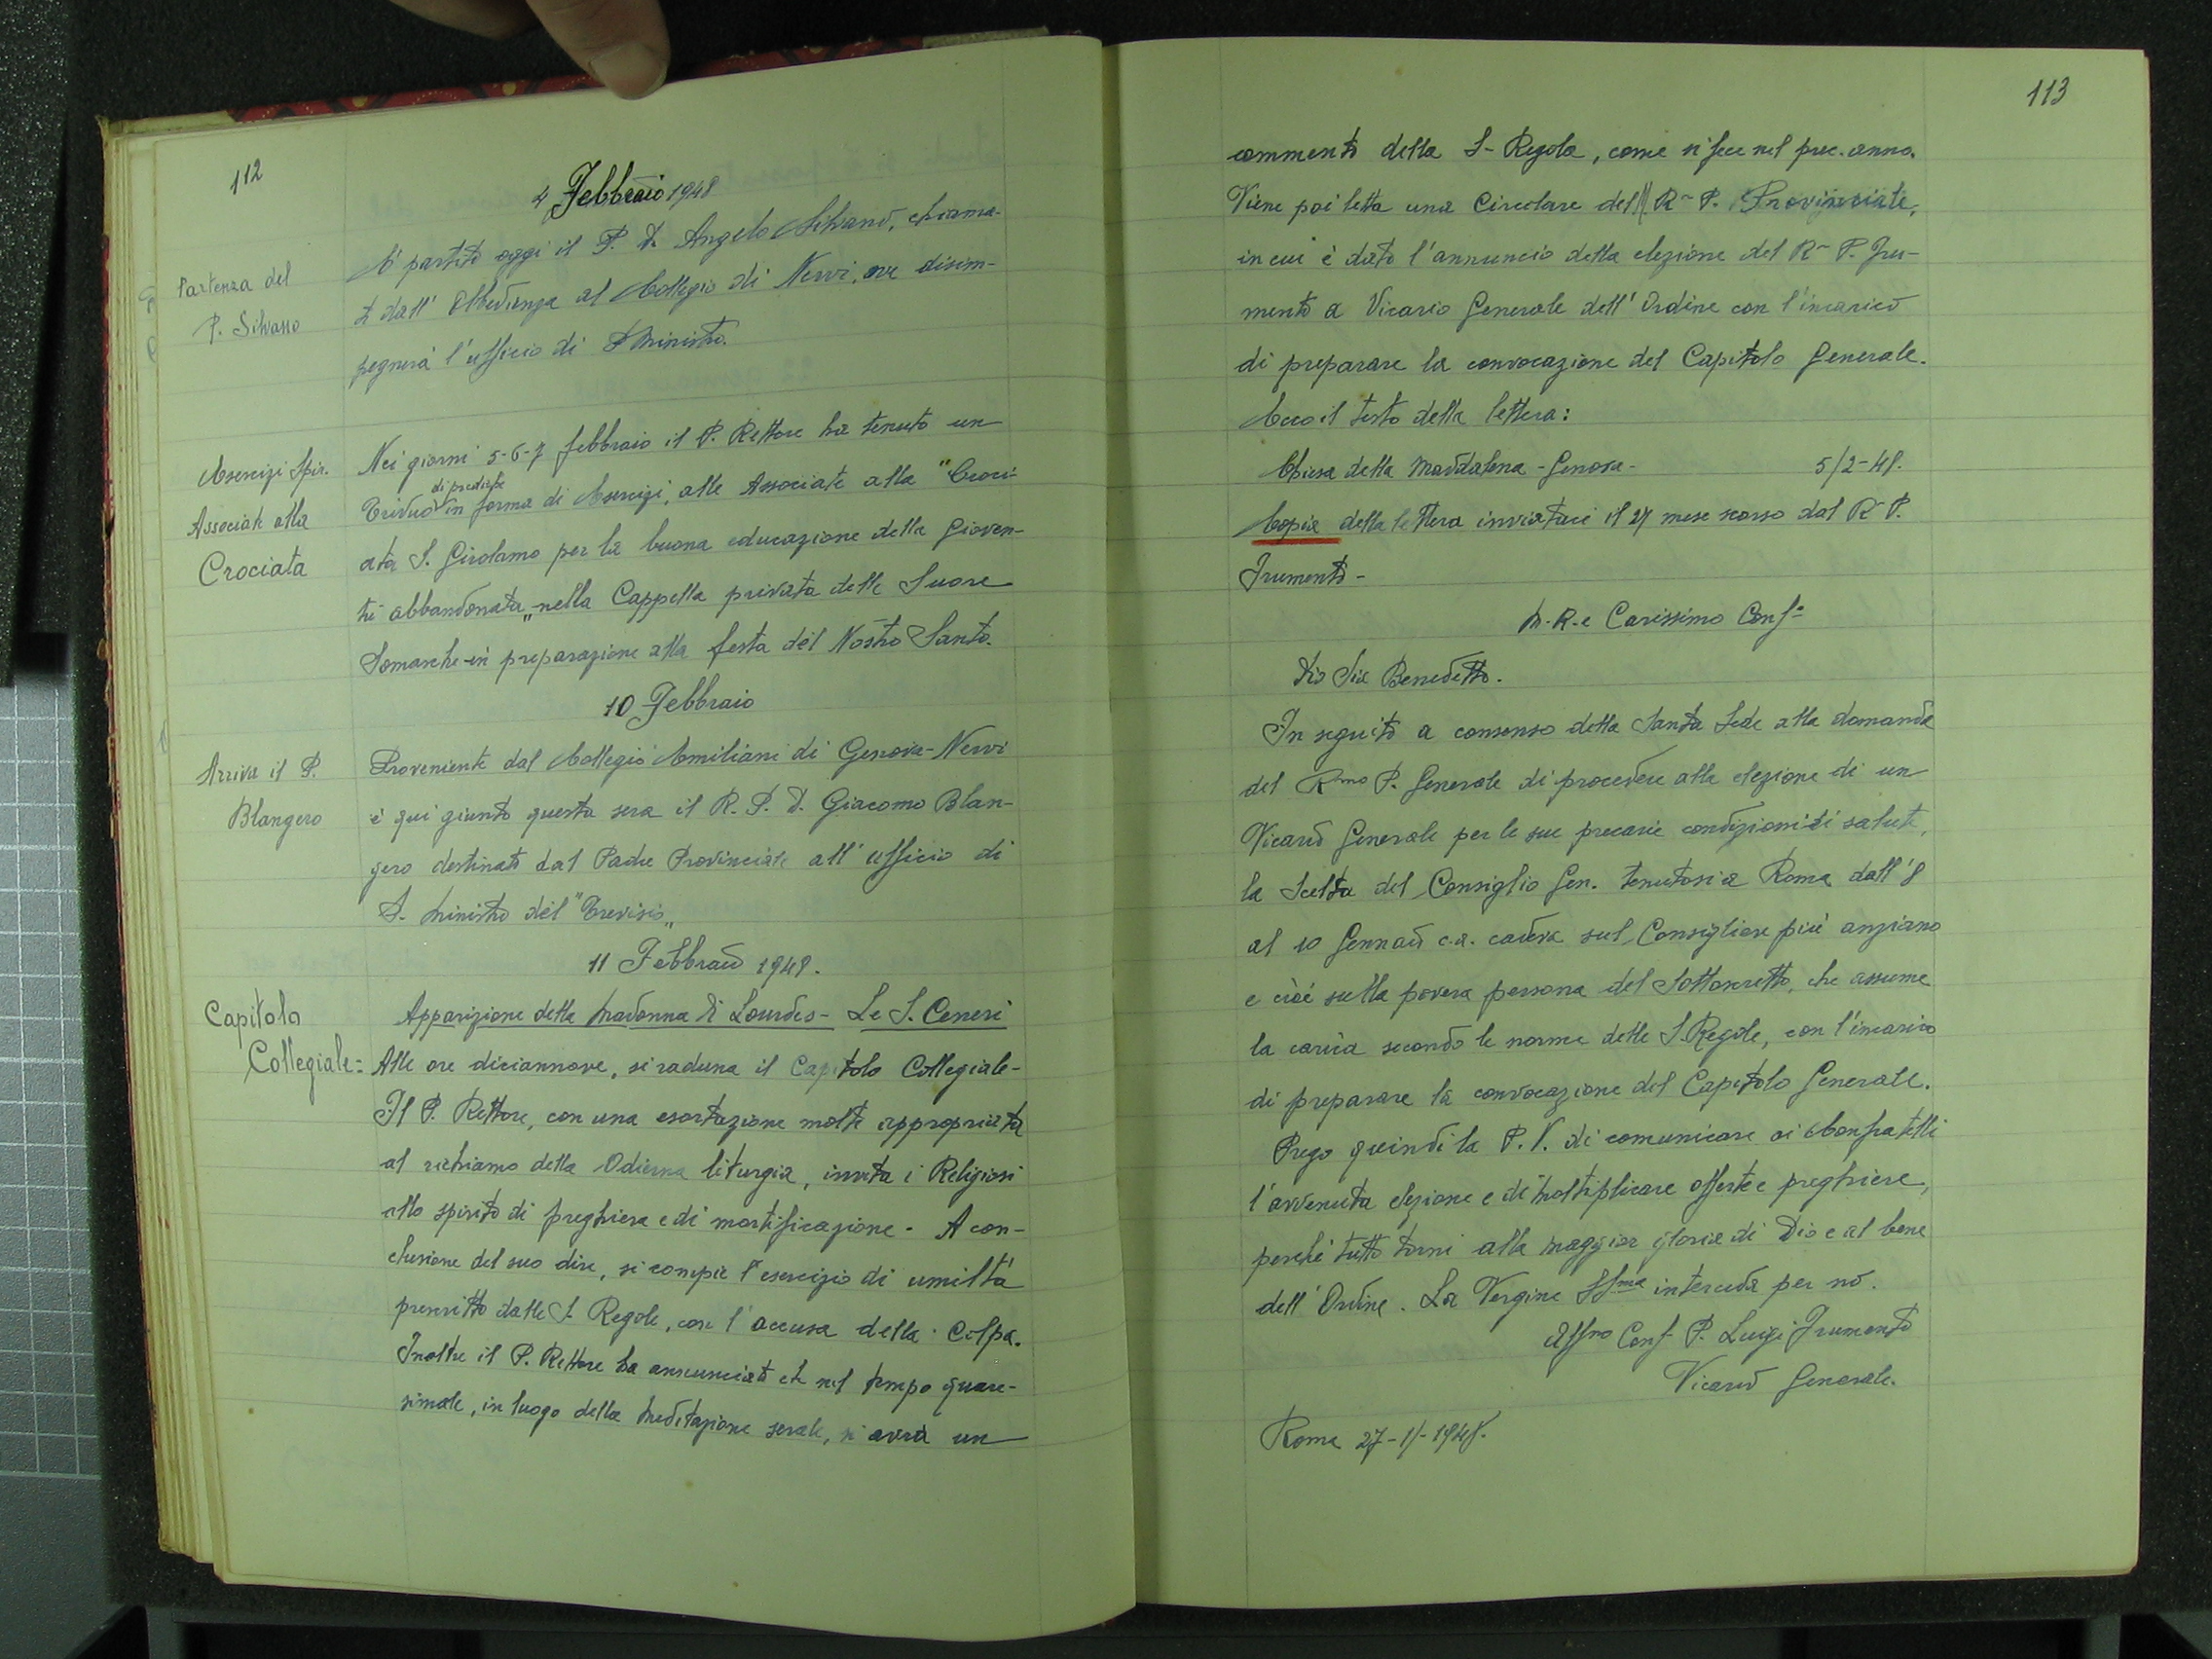 112
4 Febbraio 1948
Partenza del
P. Silvano
E' partito oggi il P. D. Angelo Silvano, chiama-
to dall' Obbedienza al Collegio di Nervi, ove disim-
pegnerà l'ufficio di Ministro.
Esercizi Spir.
Associate alla
Crociata
Nei giorni 5-6-7 febbraio il P. Rettore ha tenuto un
di prediche
Triduo in forma di Esercizi, alle Associate alla "Croci-
ata S. Girolamo per la buona educazione della gioven-
tù abbandonata„ nella Cappella privata delle Suore
Somasche in preparazione alla festa del Nostro Santo.
10 Febbraio
Arriva il P.
Blangero
Proveniente dal Collegio Emiliani di Genova-Nervi
è qui giunto questa sera il R. P. D. Giacomo Blan-
gero destinato dal Padre Provinciale all' ufficio di
P. Ministro del "Trevisio„
11 Febbraio 1948.
Capitolo
Collegiale:
Apparizione della Madonna di Lourdes - Le S. Ceneri
Alle ore diciannove, si raduna il Capitolo Collegiale-
Il P. Rettore, con una esortazione molto appropriata
al richiamo della Odierna liturgia, invita i Religiosi
allo spirito di preghiera e di mortificazione. A con-
clusione del suo dire, si compie l'esercizio di umiltà
prescritto dalle S. Regole, con l'accusa della Colpa.
Inoltre il P. Rettore ha annunciato che nel tempo quare-
simale, in luogo della Meditazione serale, si avrà un
113
commento della S- Regola, come si fece nel prec. anno.
Viene poi letta una Circolare del R- P. Provinciale,
in cui è dato l'annuncio della elezione del R- P. Fru-
mento a Vicario Generale dell'Ordine con l'incarico
di preparare la convocazione del Capitolo Generale.
Ecco il testo della lettera:
Chiesa della Maddalena - Genova - 5/2-48.
Copia della lettera inviataci il 27 mese scorso dal R- P.
Frumento-
M.R. e Carissimo Conf-
Dio Sia Benedetto.
In seguito a consenso della Santa Sede alla domanda
del Rmo P. Generale di procedere alla elezione di un
Vicario Generale per le sue precarie condizioni di salute,
la Scelta del Consiglio Gen. tenutosi a Roma dall'8
al 10 Gennaio c.a. cadeva sul Consigliere più anziano
e cioè sulla povera persona del Sottoscritto, che assume
la carica secondo le norme delle S. Regole, con l'incarico
di preparare la convocazione del Capitolo Generale.
Prego quindi la P. V. di comunicare ai Confratelli
l'avvenuta elezione e di moltiplicare offerte e preghiere,
perché tutto torni alla maggior gloria di Dio e al bene
dell'Ordine. La Vergine SSma interceda per noi.
Affmo Conf. P. Luigi Frumento
Vicario Generale.
Roma 27-1-1948.